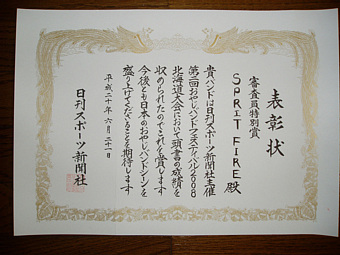 表彰状
審査員特別賞
SPRIT FIRE殿
貴バンドは日刊スポーツ新聞社主催
第二回おやじバンドフェスティバル2008
北海道大会において頭書の成績を
収められたのでこれを賞します
今後とも日本のおやじバンドシーンを
盛り上げてくださることを期待します
平成二十年六月二十一日
日刊スポーツ新聞社